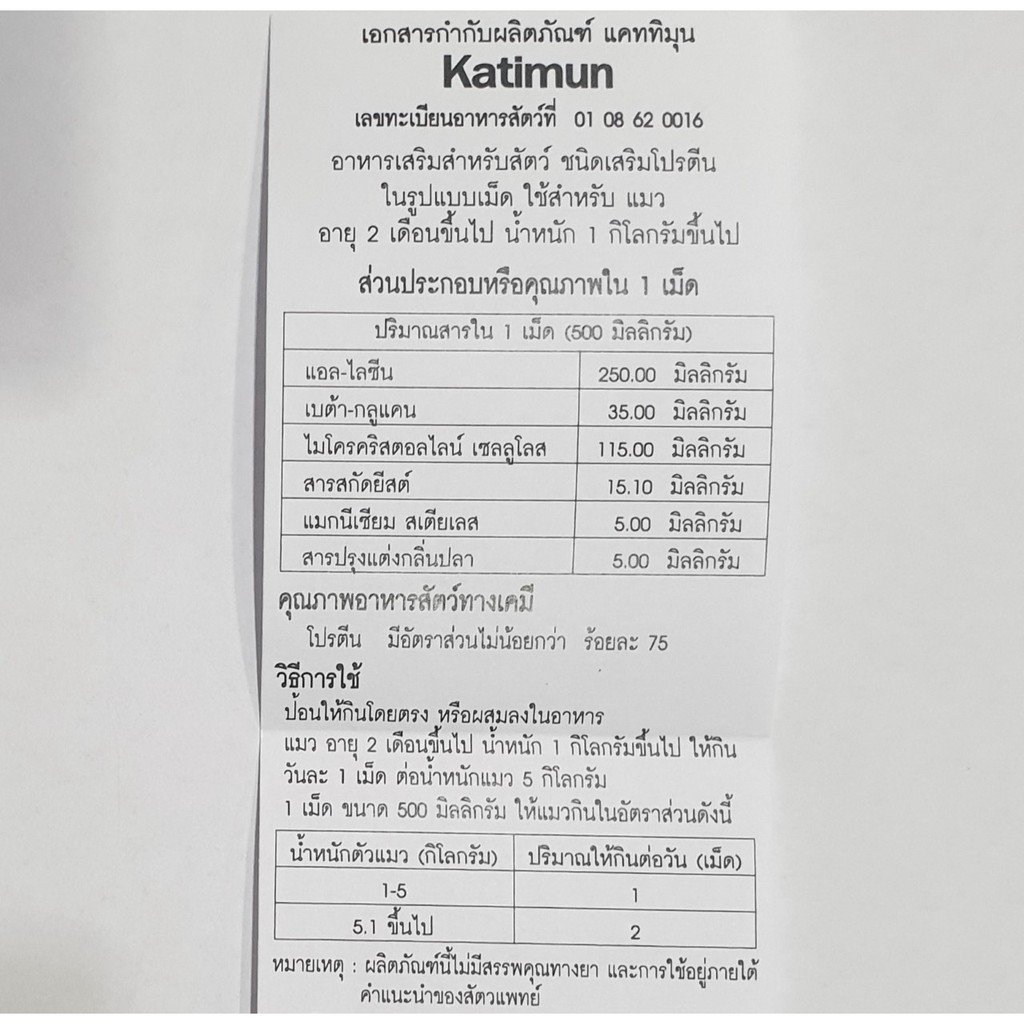 เอกสารกำกับผลิตภัณฑ์ แคททิมุน
Katimun
เลขทะเบียนอาหารสัตว์ที่ 01 08 62 0016
อาหารเสริมสำหรับสัตว์ ชนิดเสริมโปรตีน
ในรูปแบบเม็ด ใช้สำหรับ แมว
อายุ 2 เดือนขึ้นไป น้ำหนัก 1 กิโลกรัมขึ้นไป
ส่วนประกอบหรือคุณภาพใน 1 เม็ด
ปริมาณสารใน 1 เม็ด (500 มิลลิกรัม)
แอล-ไลซีน 250.00 มิลลิกรัม
เบต้า-กลูแคน 35.00 มิลลิกรัม
ไมโครคริสตอลไลน์ เซลลูโลส 115.00 มิลลิกรัม
สารสกัดยีสต์ 15.10 มิลลิกรัม
แมกนีเซียม สเตียเลส 5.00 มิลลิกรัม
สารปรุงแต่งกลิ่นปลา 5.00 มิลลิกรัม
คุณภาพอาหารสัตว์ทางเคมี
โปรตีน มีอัตราส่วนไม่น้อยกว่า ร้อยละ 75
วิธีการใช้
ป้อนให้กินโดยตรง หรือผสมลงในอาหาร
แมว อายุ 2 เดือนขึ้นไป น้ำหนัก 1 กิโลกรัมขึ้นไป ให้กิน
วันละ 1 เม็ด ต่อน้ำหนักแมว 5 กิโลกรัม
1 เม็ด ขนาด 500 มิลลิกรัม ให้แมวกินในอัตราส่วนดังนี้
น้ำหนักตัวแมว (กิโลกรัม) ปริมาณให้กินต่อวัน (เม็ด)
1-5 1
5.1 ขึ้นไป 2
หมายเหตุ : ผลิตภัณฑ์นี้ไม่มีสรรพคุณทางยา และการใช้อยู่ภายใต้
คำแนะนำของสัตวแพทย์